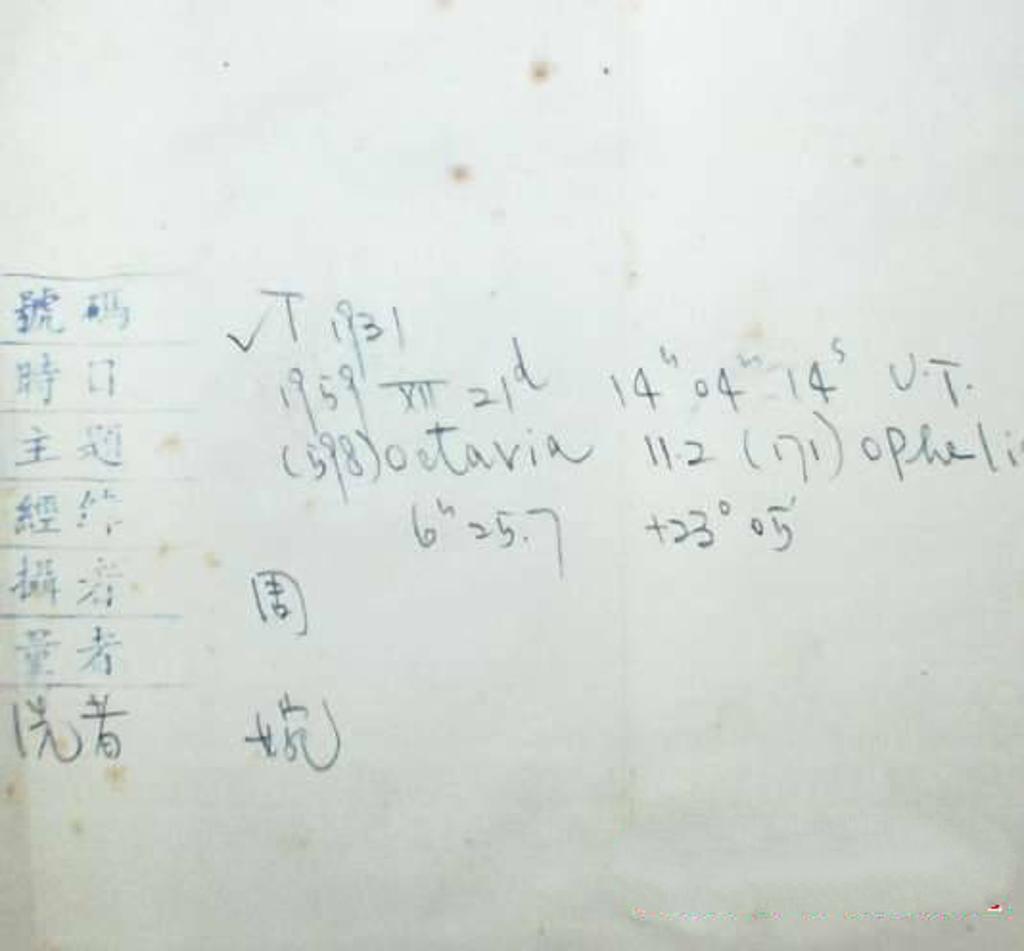 號碼 ✓T 1931
時日 1959 XII 21d 14h 04m 14s U.T.
主題 (598) Octavia 11.2 (171) Ophelia
經緯 6h 25.7 +23° 05'
攝者 周
量者
洗者 婉